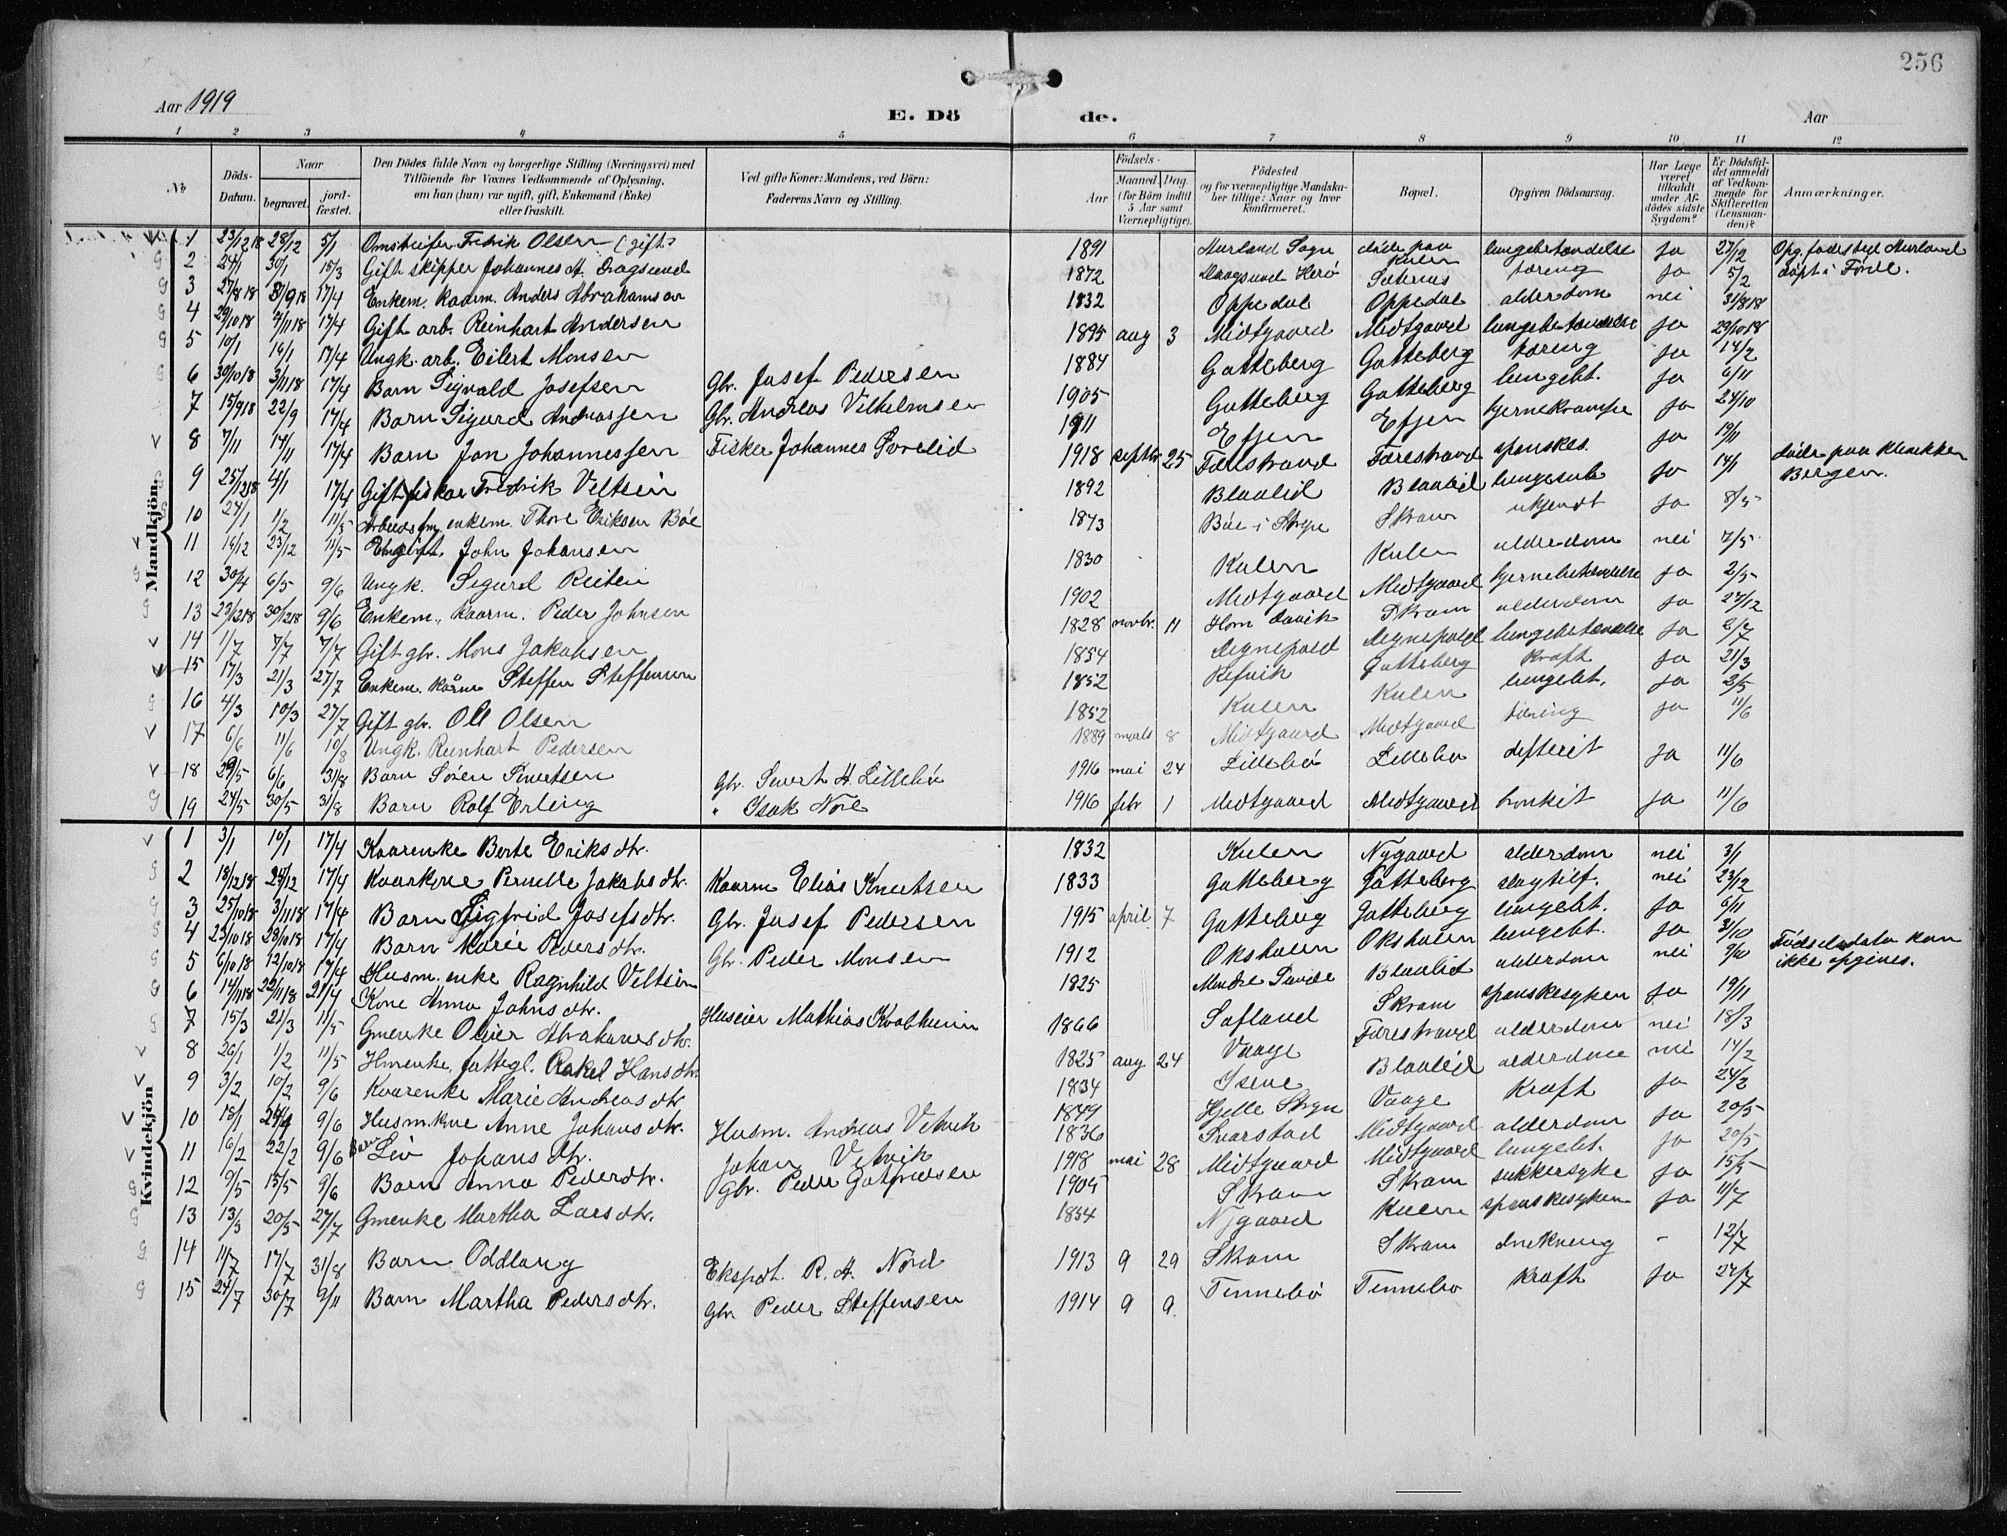 256
Aar 1919
E. Dö de.
Aar
1 2 3 4 5 6 7 8 9 10 11 12
No
Döds-Datum.
Naar
begravet.
jord-fæstet.
Den Dödes fulde Navn og borgerlige Stilling (Næringsvei) med Tilföiende for Voxnes Vedkommende af Oplysning, om han (hun) var ugift, gift, Enkemand (Enke) eller fraskilt.
Ved gifte Koner: Mandens, ved Börn: Faderens Navn og Stilling.
Födsels-
Aar
Maaned. Dag.
(for Börn indtil 5 Aar samt Værnepligtige).
Födested og for værnepligtige Mandskaber tillige: Naar og hvor Konfirmeret.
Bopæl.
Opgiven Dödsaarsag.
Har Læge været tilkaldt under Afdödes sidste Sygdom?
Er Dödsfaldet anmeldt af Vedkommende for Skifteretten (Lensmanden)?
Anmærkninger.
Mandkjön.
1 23/12 18 28/12 5/1 Fredrik Olsen (gift) 1891 Sogn døde paa Kulen lungebetændelse ja 27/2 Opg. fødested
2 24/1 30/1 15/3 Gift skipper Johannes A. Dragsund 1872 Dragsund Herø tæring ja 5/2 døpt i Førde.
3 27/8 18 8/9 18 17/4 Enkem. kaarm. Anders Abrahamsen 1832 Oppedal Oppedal alderdom nei 31/8 18
4 29/10 18 7/11 18 17/4 Gift arb. Reinhart Andersen 1895 aug 3 Midtgaard Midtgaard lungebetændelse ja 29/10 18
5 10/1 16/1 17/4 Ungk. arb. Eilert Monsen 1884 Gotteberg Gotteberg tæring ja 14/2
6 30/10 18 3/11 18 17/4 Barn Sigvald Josefsen Gbr. Josef Pedersen 1905 Gotteberg Gotteberg lungebet. ja 6/11
7 15/9 18 22/9 17/4 Barn Sigurd Andreassen Gbr. Andreas Vilhelmsen 1911 Efjen Efjen hjernekrampe ja 24/10
8 7/11 14/11 17/4 Barn Jon Johannessen Fisker Johannes Sorelid 1918 septbr 25 Førestrand Førestrand spanskes. ja 19/11
9 25/12 18 4/1 17/4 Gift fisker Fredrik Veltsin 1892 Blaalid Blaalid ja 14/1 døde paa klinikken Bergen.
10 24/1 1/2 11/5 enkem. Thore Eriksen Böe 1843 Böe i Stryn Skram ukjendt ja 8/5
11 14/12 23/12 11/5 John Johansen 1830 Kulen Kulen alderdom nei 7/5
12 30/4 6/5 9/6 Ungk. Sigurd Reiten 1902 Midtgaard Midtgaard hjernebetændelse ja 2/5
13 22/12 18 30/12 18 9/6 Enkem. kaarm. Peder Johnsen 1828 novbr. 11 Horn Davik Skram alderdom ja 27/12
14 1/7 7/7 7/7 Gift gbr. Mons Jakobsen 1854 Degnepold Degnepold lungebetændelse ja 2/7
15 17/3 21/3 27/7 Enkem. kårm Steffen Steffensen 1852 Refvik Gotteberg kræft ja 21/3
16 4/3 10/3 27/7 Gift gbr. Ole Olsen 1852 Kulen Kulen lungebet. ja 2/5
17 6/6 11/6 10/8 Ungk. Reinhart Pedersen 1889 marts 8 Midtgaard Midtgaard tæring ja 11/6
18 29/5 6/6 31/8 Barn Sören Sivertsen Gbr. Sivert A. Lillebö 1916 mai 24 Lillebö Lillebö difterit ja 11/6
19 24/5 30/5 31/8 Barn Rolf Erling " Isak Nore 1916 febr 1 Midtgaard Midtgaard bronkit ja 11/6
Kvindekjön
1 3/1 10/1 17/4 Kaarenke Berte Eriksdtr. 1832 Kulen Nygaard alderdom nei 3/1
2 18/12 18 24/12 17/4 Kaarkone Pernelle Jakobsdtr. Kaarm Elias Knutsen 1833 Gotteberg Gotteberg slagtilf. nei 23/12
3 25/10 18 3/11 18 17/4 Barn Sigfrid Josefsdtr. Gbr. Josef Pedersen 1915 april 7 Gotteberg Gotteberg lungebet. ja 6/11
4 23/10 18 29/10 18 17/4 Barn Marie Pedersdtr. Gbr. Peder Monsen 1912 Oksholen Oksholen lungebet. ja 3/10
5 6/10 18 12/10 18 17/4 Husm. enke Ragnhild Veltsin 1825 Blaalid alderdom nei 9/10 Födselsdata kan ikke opgives.
6 14/11 18 22/11 18 21/4 Kone Anna Johnsdtr. Huseier Mathias Kvalheim 1866 Sofland Skram spanskesyken ja 19/11
7 15/3 21/3 11/5 Gmenke Oline Abrahamsdtr. 1825 aug 24 Vaage Førestrand alderdom nei 18/3
8 26/1 1/2 11/5 Hmenke, fattigl. Rakel Hansdtr. 1834 Isene Blaalid alderdom nei 14/2
9 3/2 10/2 9/6 Kaarenke Marie Andreasdtr 1849 Hjelle Stryn Vaage kræft ja 24/3
10 18/1 24/1 9/6 Husm.kone Anne Johansdtr. Husm. Andreas Vetvik 1836 Svarstad Midtgaard alderdom ja 20/5
11 16/2 22/2 9/6 Barn Liv Johansdtr. Johan Vetvik 1918 mai 28 Midtgaard Midtgaard lungebet. ja 20/5
12 9/5 15/5 9/6 Barn Anna Pedersdtr. Gbr. Peder Gotfredsen 1905 Skram Skram sukkersyke ja 15/5
13 13/5 20/5 27/7 Gmenke Martha Larsdtr. 1854 Nygaard Kulen spanskesyken ja 11/7
14 11/7 17/7 31/8 Barn Oddlaug Ekspdt. R. A. Nord 1913 9 29 Skram Skram drukning - 12/7
15 24/7 30/7 9/11 Barn Martha Pedersdtr. Gbr Peder Steffensen 1914 9 9. Tennebö Tennebö kræft ja 27/7